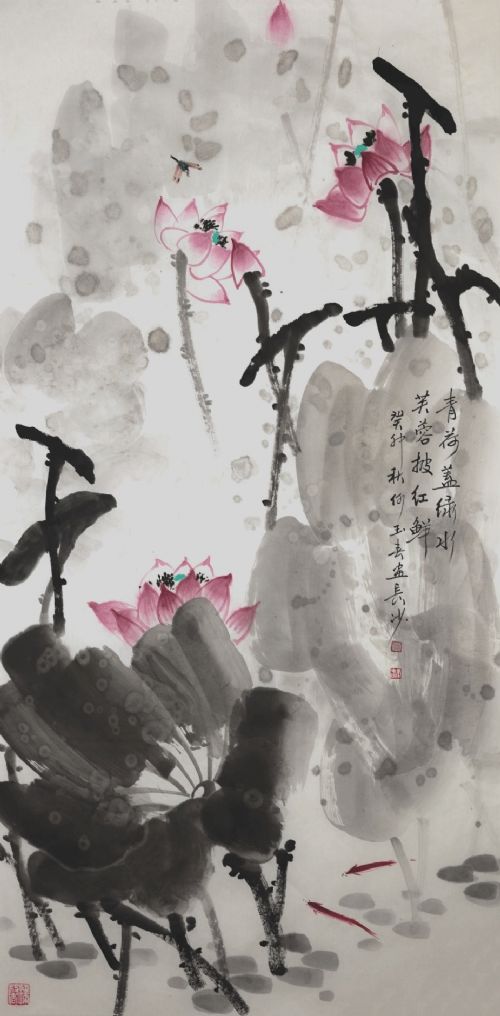 青荷盖绿水
芙蓉披红鲜
癸卯秋何玉春画長沙